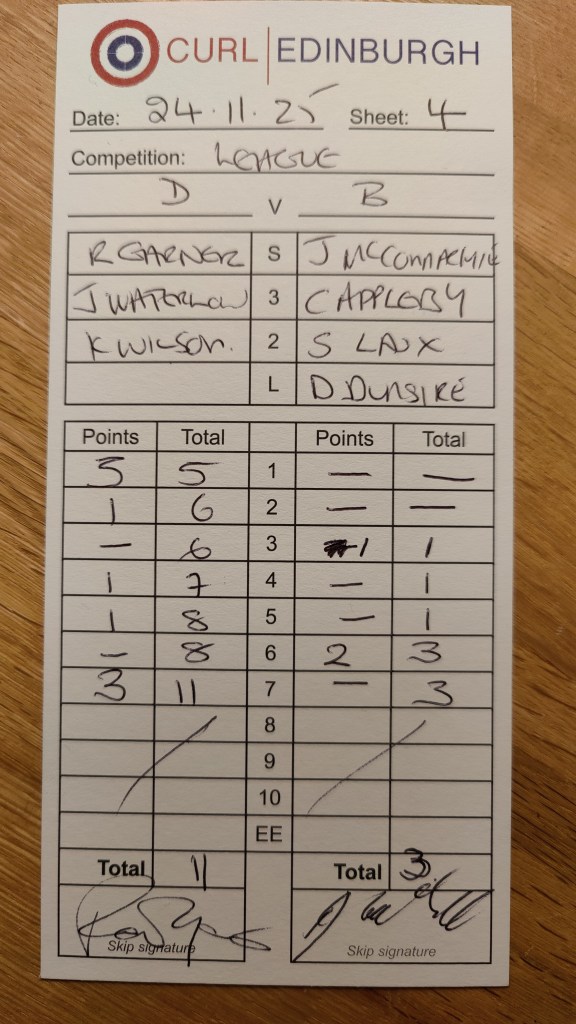 CURL EDINBURGH
Date: 24.11.25 Sheet: 4
Competition: LEAGUE
D V B
R GARNER S J MCCONNACHIE
J WATERLOW 3 C APPLEBY
K WILSON. 2 S LAUX
L D DUNSIRE
Points Total Points Total
5 5 1 — —
1 6 2 — —
— 6 3 1 1
1 7 4 — 1
1 8 5 — 1
— 8 6 2 3
3 11 7 — 3
8
9
10
EE
Total 11 Total 3
Skip signature Skip signature